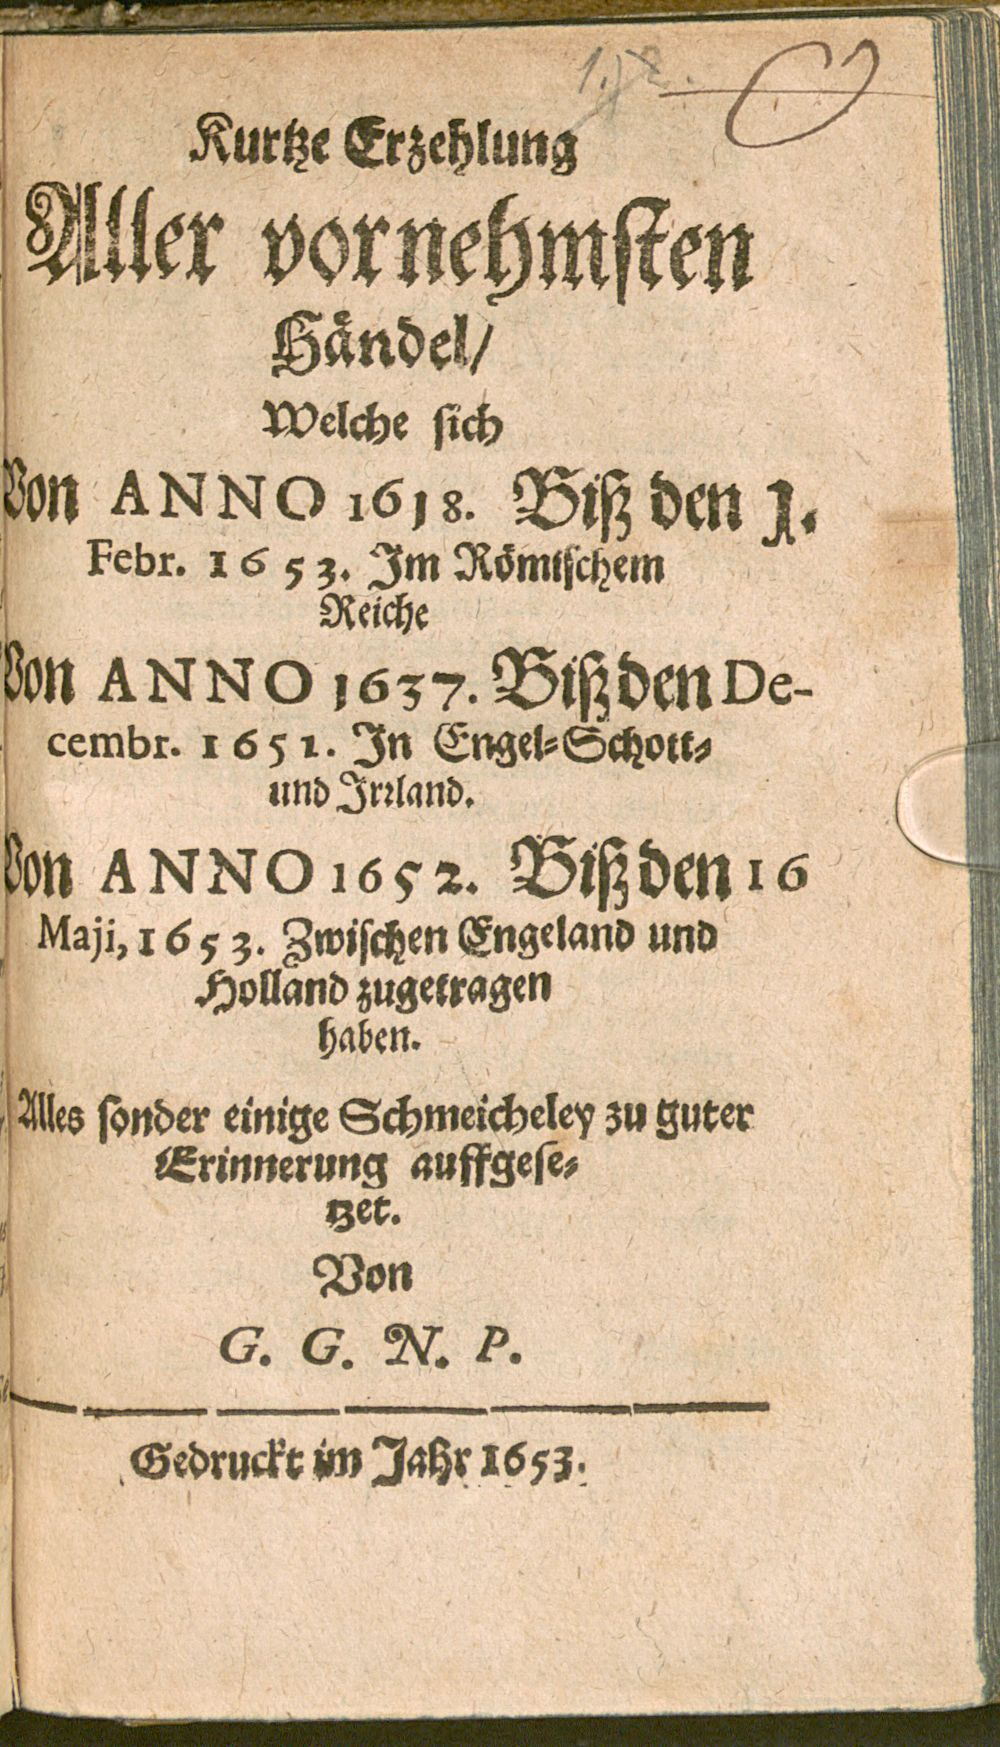 Kurtze Erzehlung
Aller vornehmsten
Händel/
Welche sich
Von ANNO 1618. Biß den 1.
Febr. 1653. Im Römischem
Reiche
Von ANNO 1637. Biß den De-
cembr. 1651. In Engel-Schott-
und Irrland.
Von ANNO 1652. Biß den 16
Maji, 1653. Zwischen Engeland und
Holland zugetragen
haben.
Alles sonder einige Schmeicheley zu guter
Erinnerung auffgese-
tzet.
Von
G. G. N. P.
Gedruckt im Jahr 1653.